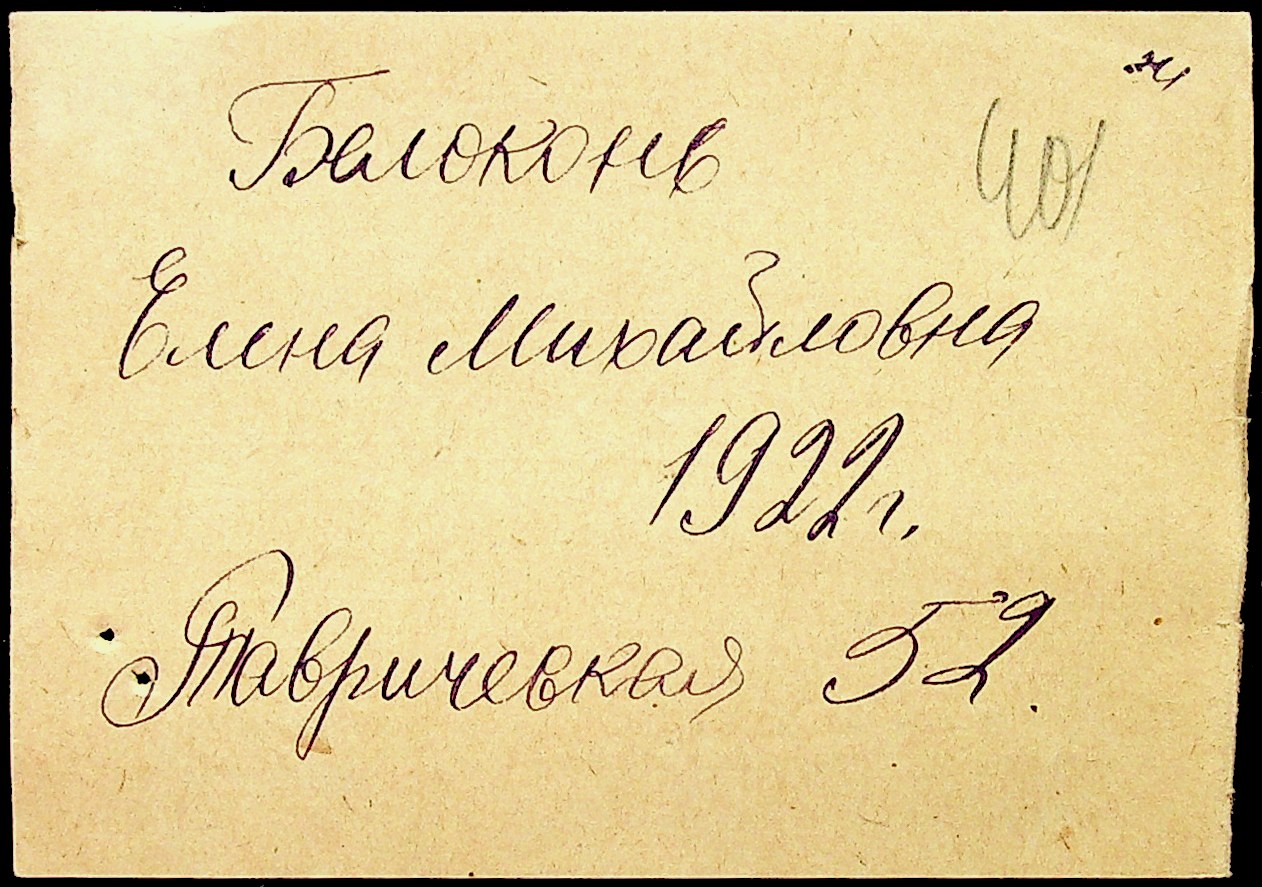 Белоконь
401
Елена Михайловна
1922г.
Таврическая 52.